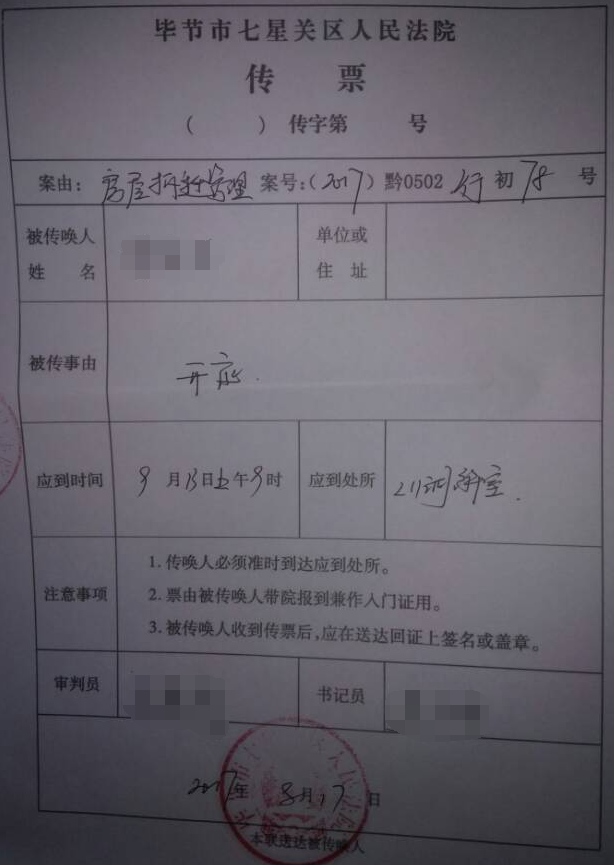 毕节市七星关区人民法院
传 票
( ) 传字第 号
案由：房屋拆迁管理 案号：(2017) 黔0502 行 初 78 号
被传唤人
姓 名
单位或
住 址
被传事由
开庭.
应到时间
9 月 13 日 上午 9 时
应到处所
注意事项
1. 传唤人必须准时到达应到处所。
2. 票由被传唤人带院报到兼作入门证用。
3. 被传唤人收到传票后，应在送达回证上签名或盖章。
审判员
书记员
2017年 8月17日
本联送达被传唤人